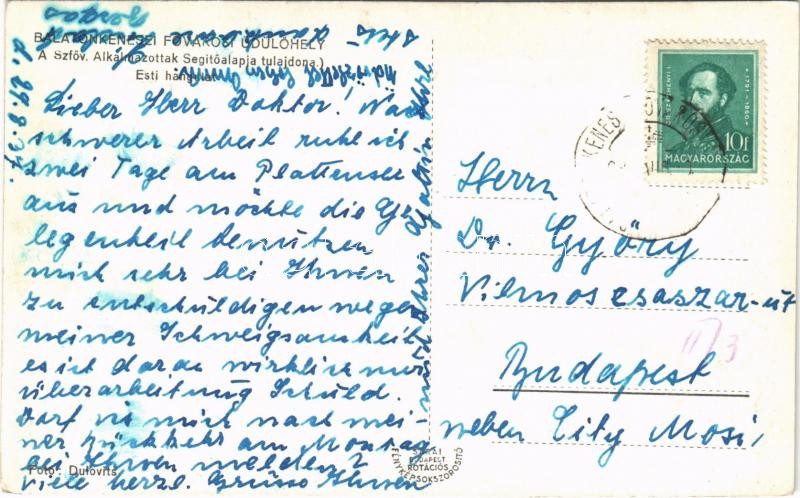 BALATONKENESEI FŐVÁROSI ÜDÜLŐHELY
A Szföv. Alkalmazottak Segítőalapja tulajdona.)
Esti hangulat
d. 29.8.37.
Lieber Herr Doktor! Nach
schwerer Arbeit ruhe ich
zwei Tage am Plattensee
aus und möchte die Ge-
legenheit benutzen
mich sehr bei Ihnen
zu entschuldigen wegen
meiner Schweigsamkeit
es ist daran wirklich nur
überarbeitung Schuld.
Darf ich mich nach mei-
ner Rückkehr am Montag
bei Ihnen melden?
Viele herzl. Grüsse Ihnen
und Ihrer Gattin Ihre
Foto: Dulovits
SZ. SÉCHENYI I.
1791-1860
10f
MAGYARORSZÁG
Herrn
Dr. Györy
Vilmos császár-út
II/3
Budapest
neben City Mozi,
BUDAPEST
ROTÁCIÓS
FÉNYKÉPSOKSZOROSÍTÓ